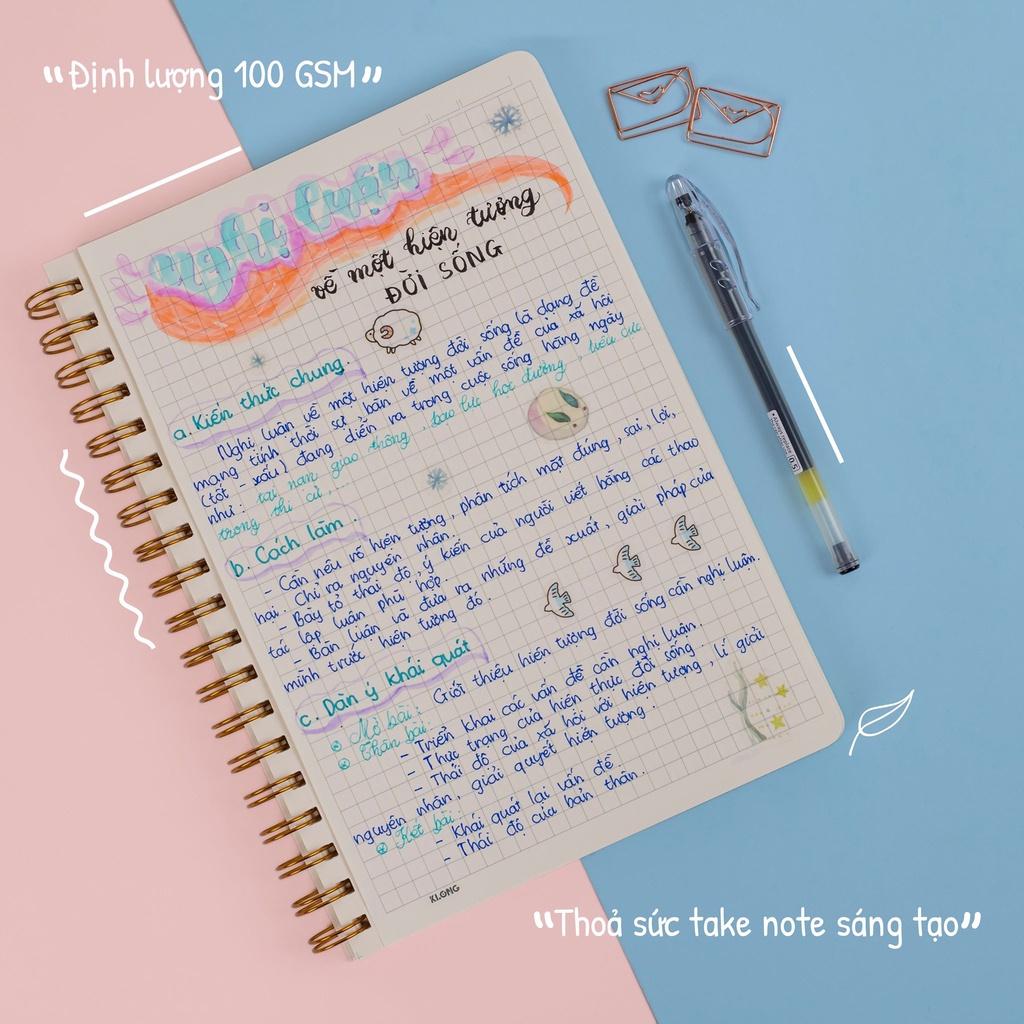 "Định lượng 100 GSM"
Nghị luận
về một hiện tượng
ĐỜI SỐNG
a. Kiến thức chung.
Nghị luận về một hiện tượng đời sống là dạng đề
mang tính thời sự, bàn về một vấn đề của xã hội
(tốt - xấu) đang diễn ra trong cuộc sống hằng ngày
như: tai nạn giao thông, bạo lực học đường, tiêu cực
trong thi cử,..
b. Cách làm.
- Cần nêu rõ hiện tượng, phân tích mặt đúng, sai, lợi,
hại. Chỉ ra nguyên nhân.
- Bày tỏ thái độ, ý kiến của người viết bằng các thao
tác lập luận phù hợp.
- Bàn luận và đưa ra những đề xuất, giải pháp của
mình trước hiện tượng đó.
c. Dàn ý khái quát
Mở bài: Giới thiệu hiện tượng đời sống cần nghị luận.
Thân bài:
- Triển khai các vấn đề cần nghị luận.
- Thực trạng của hiện thực đời sống.
- Thái độ của xã hội với hiện tượng, lí giải
nguyên nhân, giải quyết hiện tượng.
Kết bài:
- Khái quát lại vấn đề.
- Thái độ của bản thân.
KLONG
0.5
"Thoả sức take note sáng tạo"